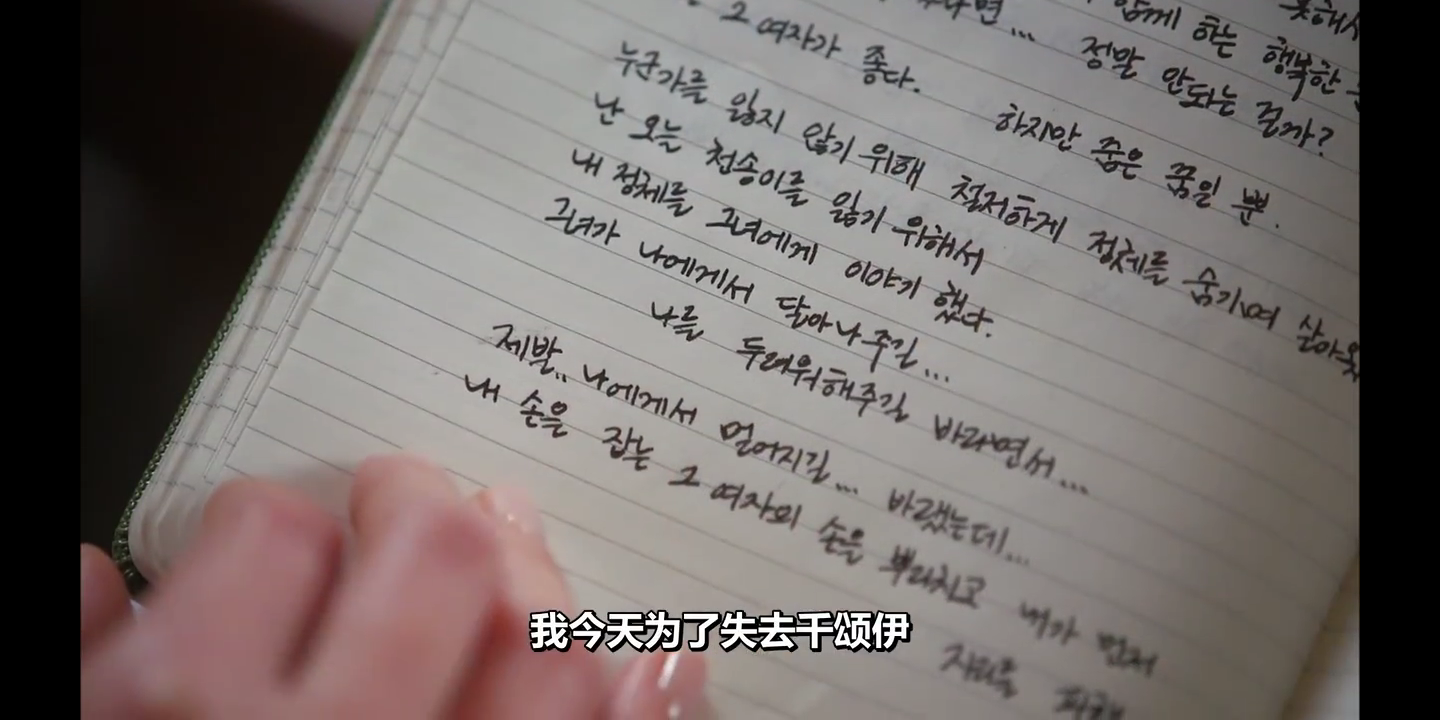 못해서
함께 하는 행복한
정말 안되는 걸까?
그 여자가 좋다. 하지만 꿈은 꿈일 뿐.
누군가를 잃지 않기 위해 철저하게 정체를 숨기며 살아왔
난 오늘 천송이를 잃기 위해서
내 정체를 그녀에게 이야기 했다.
그녀가 나에게서 달아나주길...
나를 두려워해주길 바라면서...
제발.. 나에게서 멀어지길... 바랬는데...
내 손을 잡는 그 여자의 손을 뿌리치고 내가 먼저
자리를 피해
我今天为了失去千颂伊